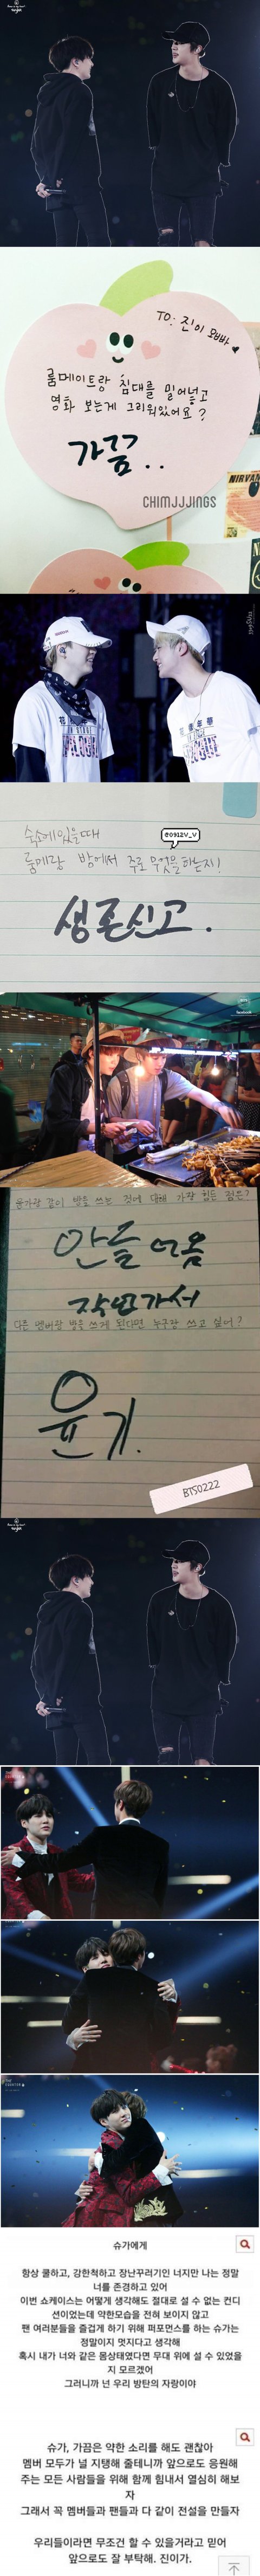 TO: 진이 오빠
룸메이트랑 침대를 밀어넣고
영화 보는게 그리워있어요?
가끔..
CHIMJJJINGS
NIRVAN
숙소에있을때
@0912V_V
룸메랑 방에서 주로 무엇을하는지!
생존신고.
같이 방을 쓰는 것에 대해 가장 힘든 점은?
안 들어옴
작년가서
다른 멤버랑 방을 쓰게 된다면 누구랑 쓰고 싶어?
윤기.
BTS0222
슈가에게
항상 쿨하고, 강한척하고 장난꾸러기인 너지만 나는 정말
너를 존경하고 있어
이번 쇼케이스는 어떻게 생각해도 절대로 설 수 없는 컨디
션이었는데 약한모습을 전혀 보이지 않고
팬 여러분들을 즐겁게 하기 위해 퍼포먼스를 하는 슈가는
정말이지 멋지다고 생각해
혹시 내가 너와 같은 몸상태였다면 무대 위에 설 수 있었을
지 모르겠어
그러니까 넌 우리 방탄의 자랑이야
슈가, 가끔은 약한 소리를 해도 괜찮아
멤버 모두가 널 지탱해 줄테니까 앞으로도 응원해
주는 모든 사람들을 위해 함께 힘내서 열심히 해보
자
그래서 꼭 멤버들과 팬들과 다 같이 전설을 만들자
우리들이라면 무조건 할 수 있을거라고 믿어
앞으로도 잘 부탁해. 진이가.